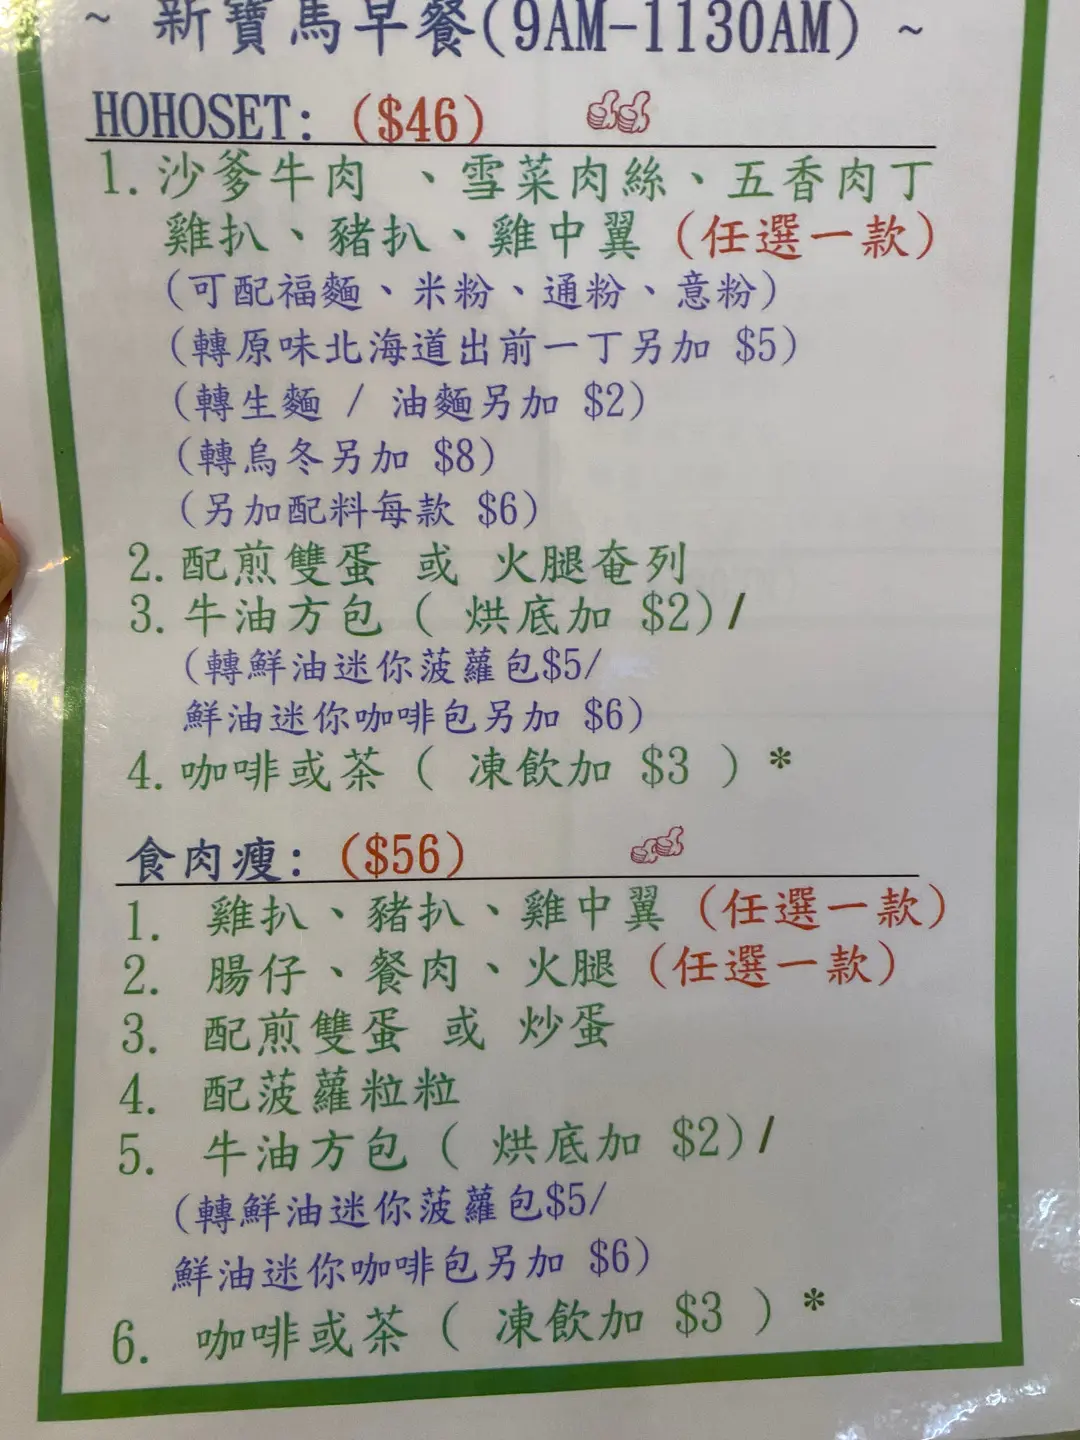 ~ 新寶馬早餐(9AM-1130AM) ~
HOHOSET: ($46)
1. 沙爹牛肉 、雪菜肉絲、五香肉丁
雞扒、豬扒、雞中翼 (任選一款)
(可配福麵、米粉、通粉、意粉)
(轉原味北海道出前一丁另加 $5)
(轉生麵 / 油麵另加 $2)
(轉烏冬另加 $8)
(另加配料每款 $6)
2. 配煎雙蛋 或 火腿奄列
3. 牛油方包 ( 烘底加 $2)/
(轉鮮油迷你菠蘿包$5/
鮮油迷你咖啡包另加 $6)
4. 咖啡或茶 ( 凍飲加 $3 ) *
食肉瘦: ($56)
1. 雞扒、豬扒、雞中翼 (任選一款)
2. 腸仔、餐肉、火腿 (任選一款)
3. 配煎雙蛋 或 炒蛋
4. 配菠蘿粒粒
5. 牛油方包 ( 烘底加 $2)/
(轉鮮油迷你菠蘿包$5/
鮮油迷你咖啡包另加 $6)
6. 咖啡或茶 ( 凍飲加 $3 ) *